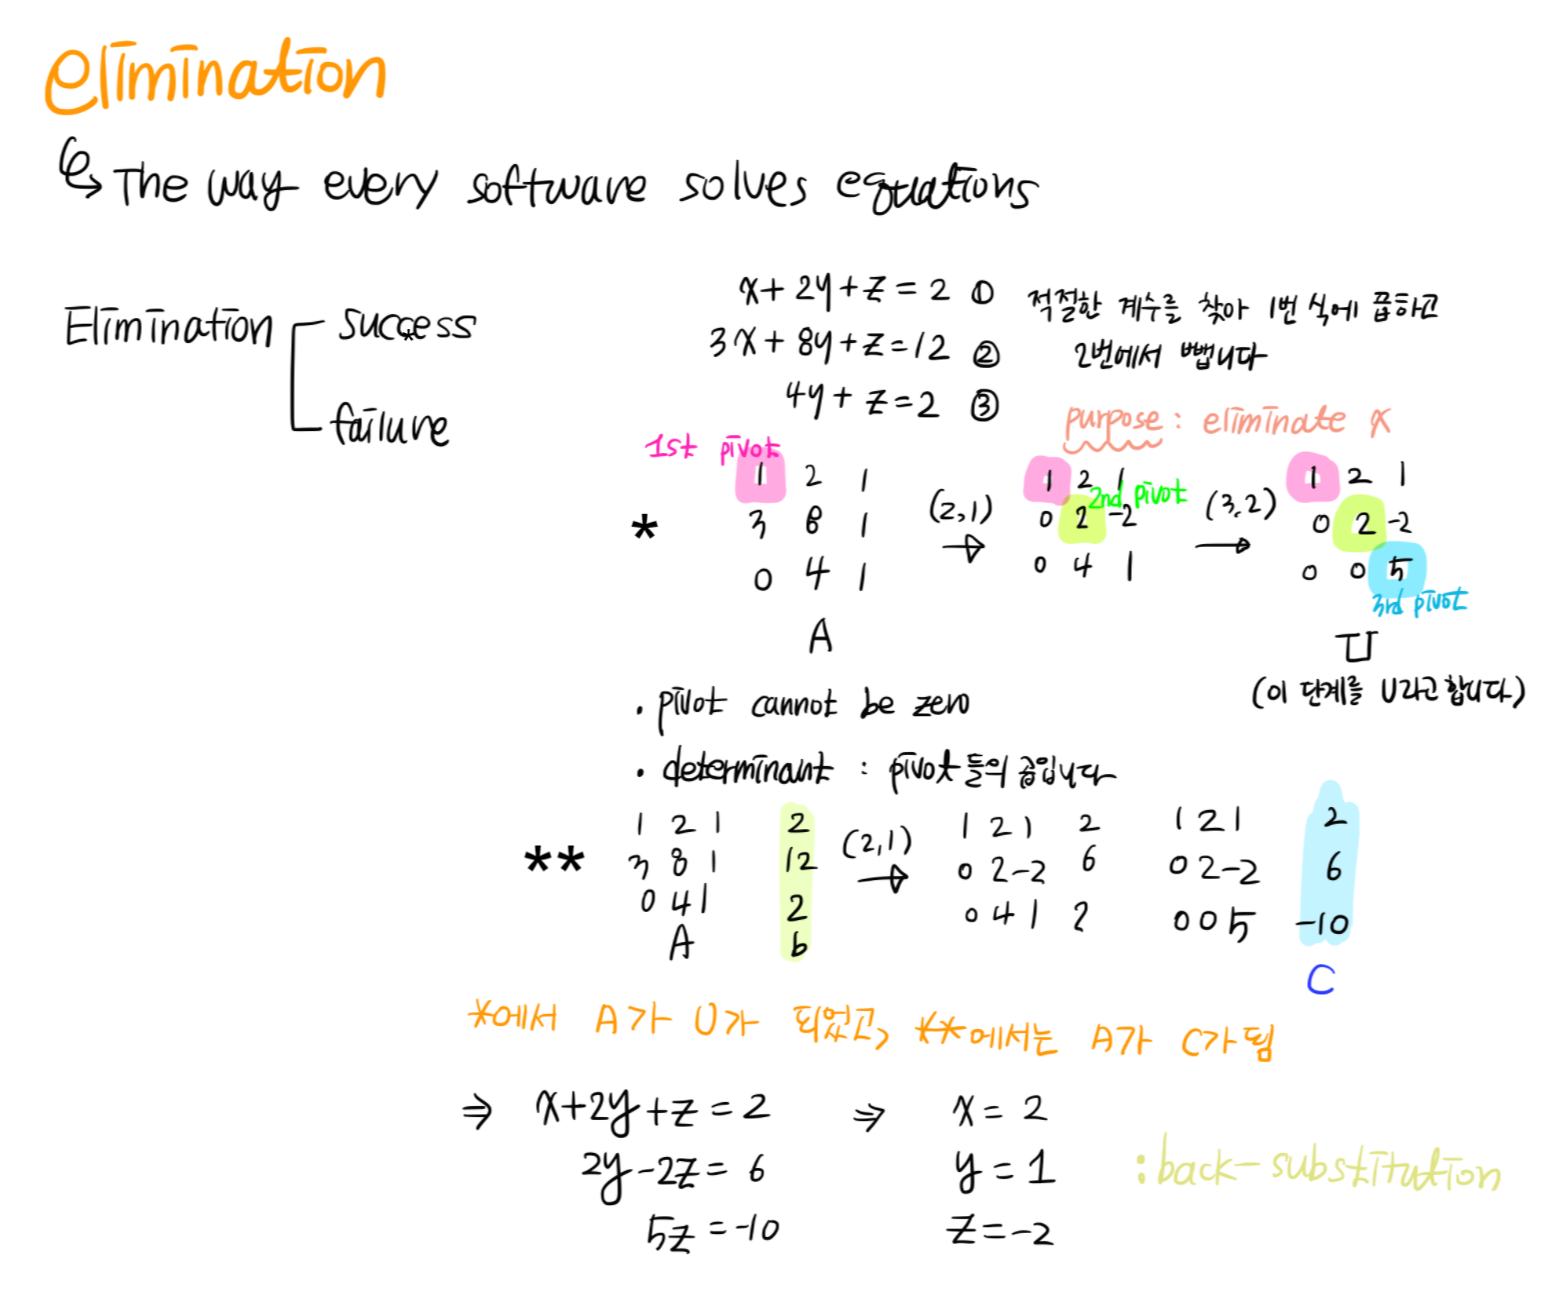 elimination
The way every software solves equations
Elimination success
failure
x + 2y + z = 2 ①
3x + 8y + z = 12 ②
4y + z = 2 ③
적절한 계수를 찾아 1번 식에 곱하고
2번에서 뺍니다
purpose : eliminate x
1st pivot
* 1 2 1
3 8 1
0 4 1
A
(2,1) →
1 2 1
2nd pivot
0 2 -2
0 4 1
(3,2) →
1 2 1
0 2 -2
0 0 5
3rd pivot
U
(이 단계를 U라고 합니다)
· pivot cannot be zero
· determinant : pivot들의 곱입니다
** 1 2 1 2
3 8 1 12
0 4 1 2
A b
(2,1) →
1 2 1 2
0 2 -2 6
0 4 1 2
1 2 1 2
0 2 -2 6
0 0 5 -10
C
*에서 A가 U가 되었고, **에서는 A가 C가 됨
⇒ x + 2y + z = 2
2y - 2z = 6
5z = -10
⇒ x = 2
y = 1
z = -2
: back-substitution